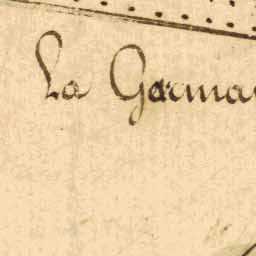 La Germa